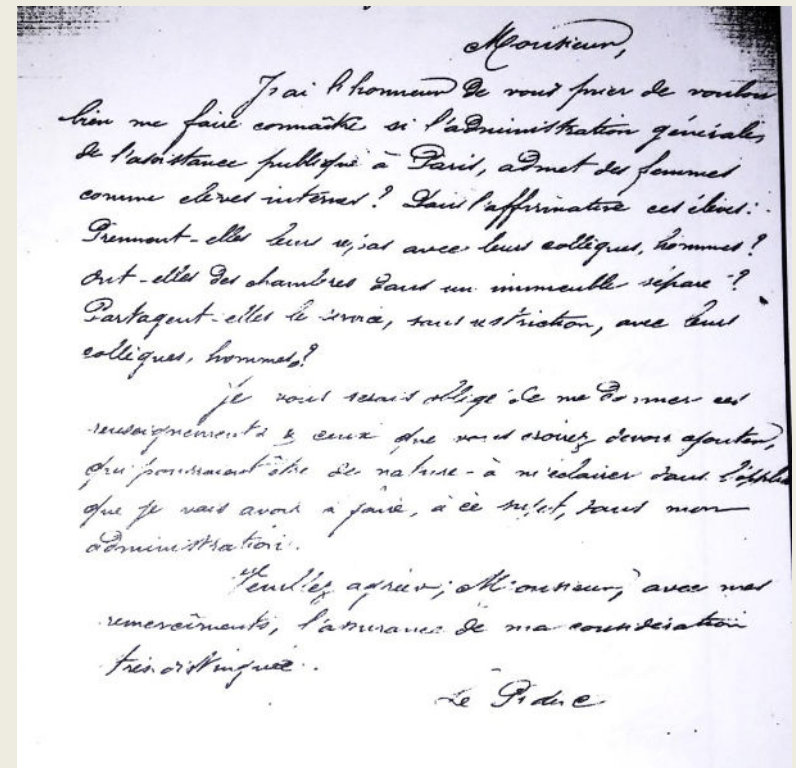 Monsieur,
J'ai l'honneur de vous prier de vouloir
bien me faire connaître si l'administration générale,
de l'assistance publique à Paris, admet des femmes
comme élèves internes ? Dans l'affirmative ces élèves :
Prennent-elles leurs repas avec leurs collègues, hommes ?
Ont-elles des chambres dans un immeuble séparé ?
Partagent-elles le service, sans restriction, avec leurs
collègues, hommes ?
Je vous serais obligé de me donner ces
renseignements & ceux que vous croirez devoir ajouter,
qui pourraient être de nature à m'éclairer dans
que je vais avoir à faire, à ce sujet, dans mon
administration.
Veuillez agréer, Monsieur, avec mes
remercîments, l'assurance de ma considération
très distinguée.
Le